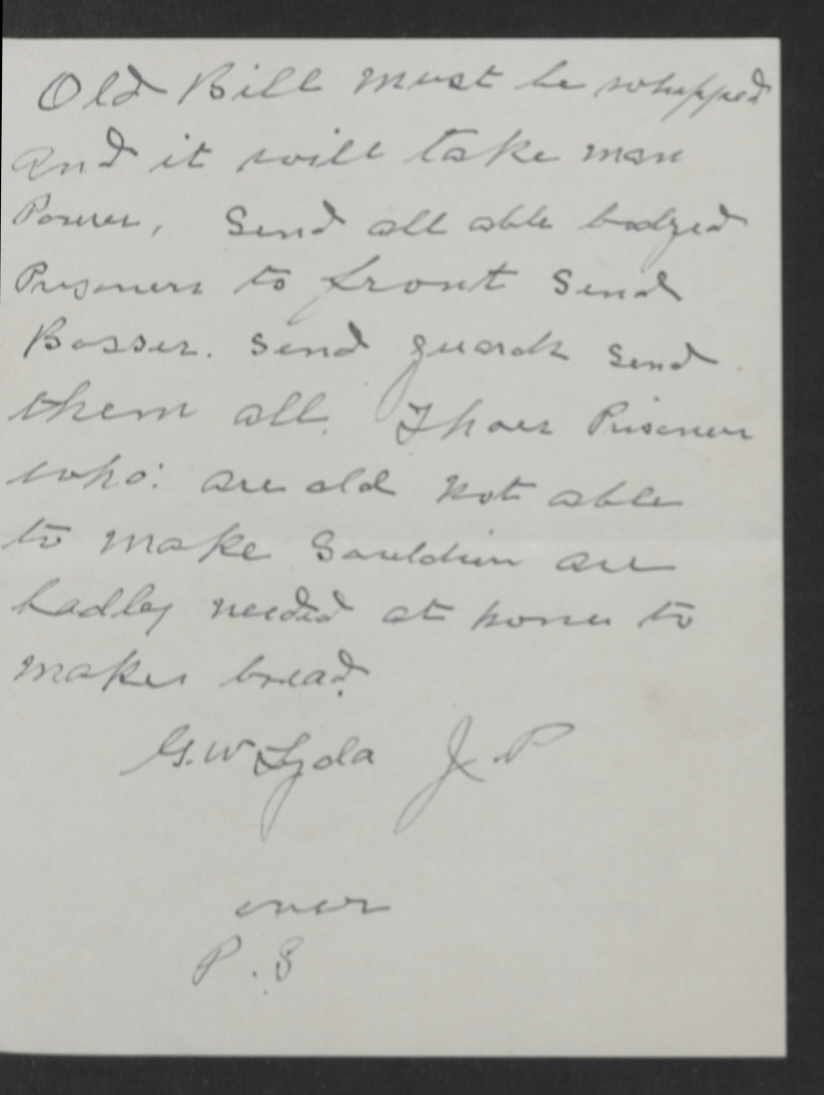 Old Bill must be whipped
and it will take man
Power, Send all able bodyed
Prisoners to front Send
Bosses. Send guards Send
them all. Thoes Prisoners
who: are old not able
to make Souldiers are
badley needed at home to
makes bread.
G.W Lyda J.P
over
P.S